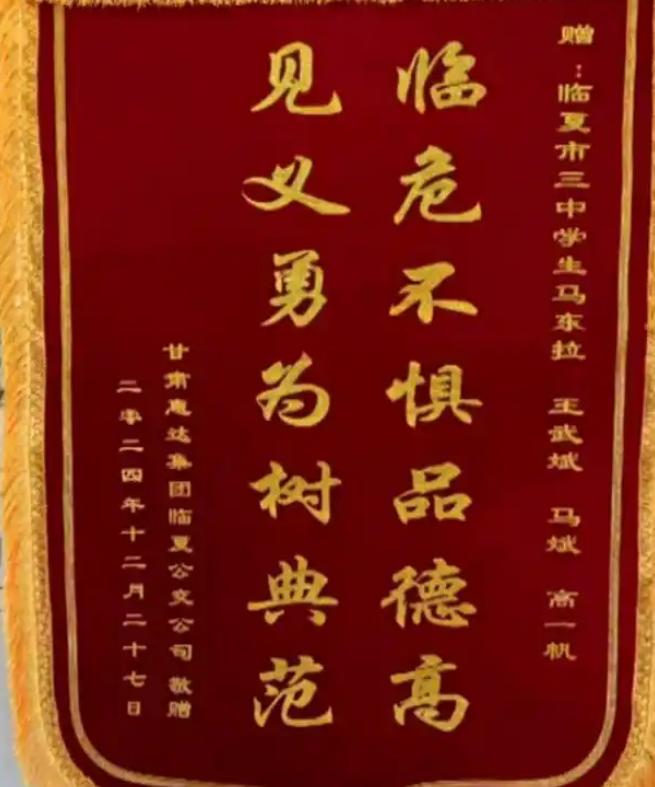 赠：临夏市三中学生马东拉 王武斌 马斌 高一帆
临危不惧品德高
见义勇为树典范
甘肃惠达集团临夏公交公司 敬赠
二零二四年十二月二十七日